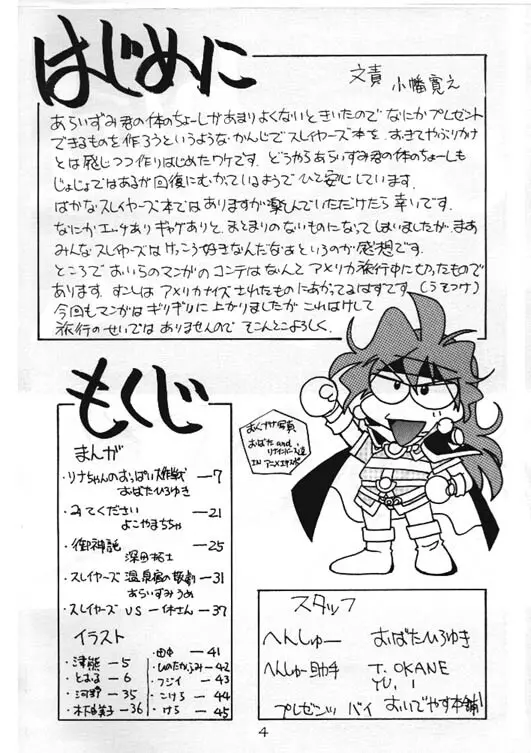 はじめに
文責 小幡寛之
あらいずみ君の体のちょーしがあまりよくないときいたのでなにかプレゼント
できるものを作ろうというようなかんじでスレイヤーズ本を、おきてやぶりかナ
とは感じつつ作りはじめたワケです。どうやらあらいずみ君の体のちょーしも
じょじょではあるが回復にむかっているようでひと安心しています。
ばかなスレイヤーズ本ではありますが楽しんでいただけたら幸いです。
なにかエッチありギャグありと、まとまりのないものになってしまいましたが、まあ
みんなスレイヤーズはけっこう好きなんだなあというのが感想です。
ところでおいらのマンガのコンテはなんとアメリカ旅行中に切ったもので
あります。すこしはアメリカナイズされたものにあがってるはずです。(うそつけ)
今回もマンガはギリギリに上がりましたがこれはけして
旅行のせいではありませんのでそこんとこよろしく。
もくじ
まんが
・リナちゃんのおっぱい大作戦 —7
おばたひろゆき
・みてください —21
よこやまちちゃ
・御神説 —25
深田拓士
・スレイヤーズ 温泉宿の惨劇 —31
あらいずみうめ
・スレイヤーズ VS 一休さん —37
イラスト
・津熊 —5
・とおる —6
・河野 —35
・木下由美子 —36
・田中 —41
・ひのたかふみ —42
・フジイ —43
・こけら —44
・けら —45
あくかけ写真
おばた and
リナインバース達
IN アニメエキスポ
スタッフ
へんしゅー おばたひろゆき
へんしゅー助手 T. OKANE
プレゼンツ バイ おいでやす本舗!
4